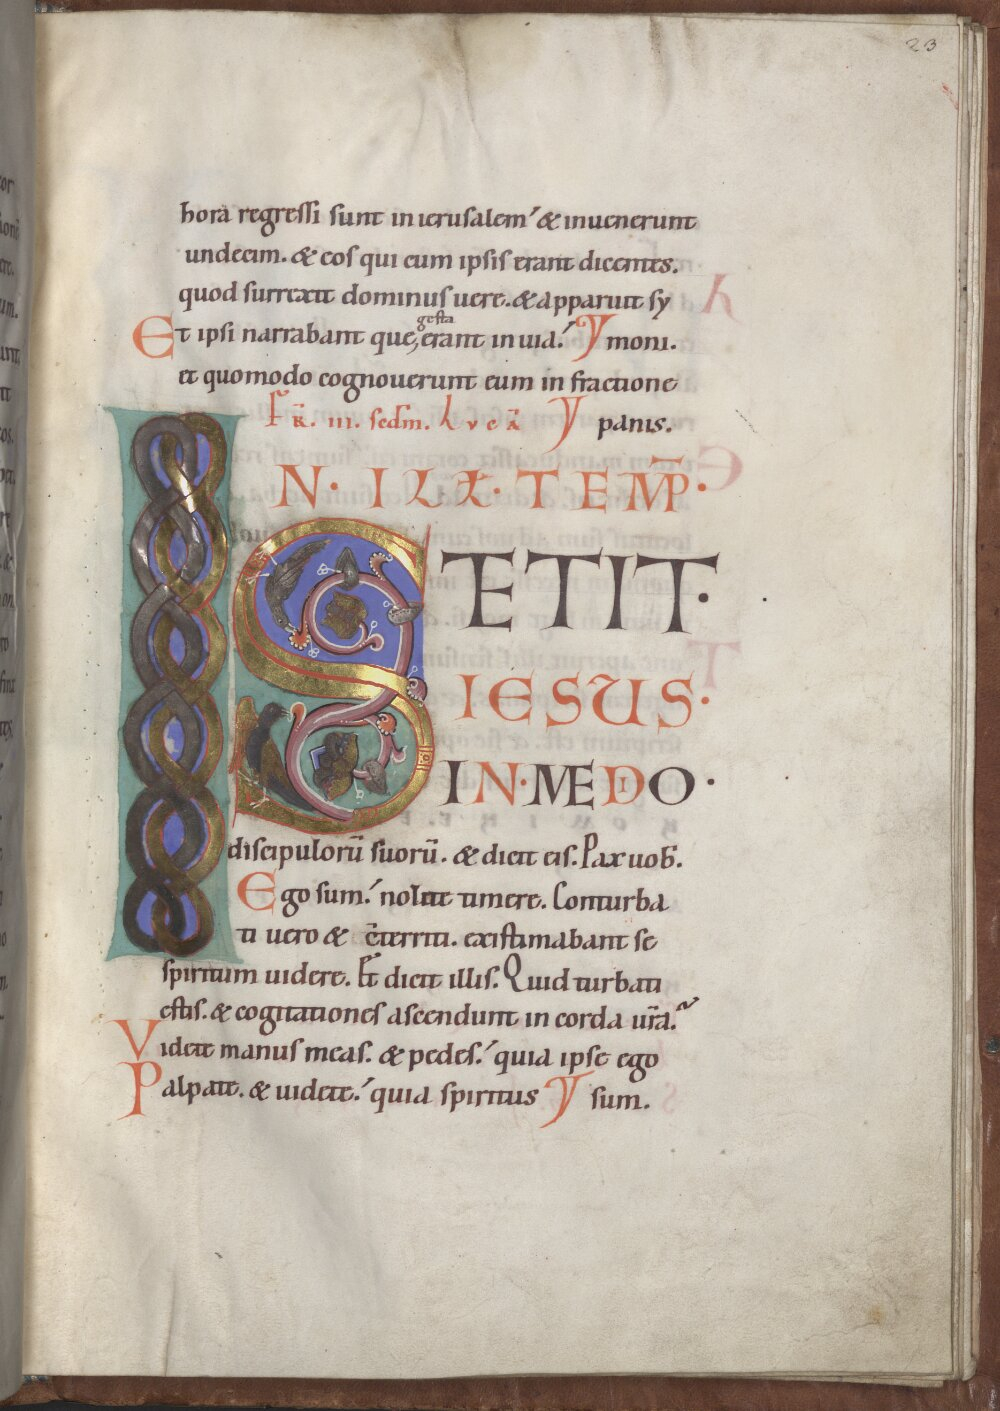 23
hora regressi sunt in ierusalem. & inuenerunt
undecim. & eos qui cum ipsis erant dicentes.
quod surrexit dominus uere. & apparuit sy
Et ipsi narrabant que, gesta erant in uia. moni.
et quomodo cognouerunt eum in fractione
panis.
FR. III. sedm. lucā
IN. ILLT. TEMP.
STETIT.
IESUS.
IN. MEDIO.
discipulorū suorū. & dicit eis. Pax uob.
Ego sum. nolite timere. Conturba
ti uero & cterriti. existimabant se
spiritum uidere. Et dicit illis. Quid turbati
estis. & cogitationes ascendunt in corda urā.
Videte manus meas. & pedes. quia ipse ego
Palpate. & uidete. quia spiritus sum.